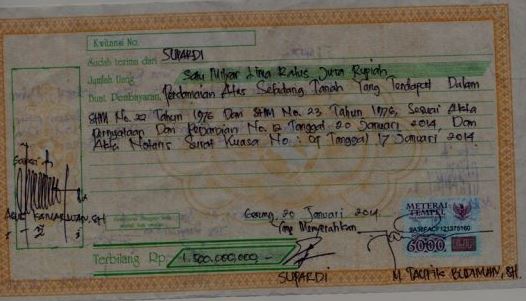 Kwitansi No.
Sudah terima dari SUPARDI
Jumlah Uang Satu Milyar Lima Ratus Juta Rupiah
Buat Pembayaran Perdamaian Atas Sebidang Tanah Yang Terdapat Dalam
SHM No. 22 Tahun 1976 Dan SHM No. 23 Tahun 1976, Sesuai Akta
Pernyataan Dan Perjanjian No. 12 Tanggal 20 Januari 2014, Dan
Akta Notaris Surat Kuasa No : 09 Tanggal 17 Januari 2014
Saksi
SH
20 Januari 2014
Yang Menyerahkan
METERAI
TEMPEL
6000
Terbilang Rp. 1.500.000.000,-
SUPARDI
M. TAUFIK BUDIMAN, SH.